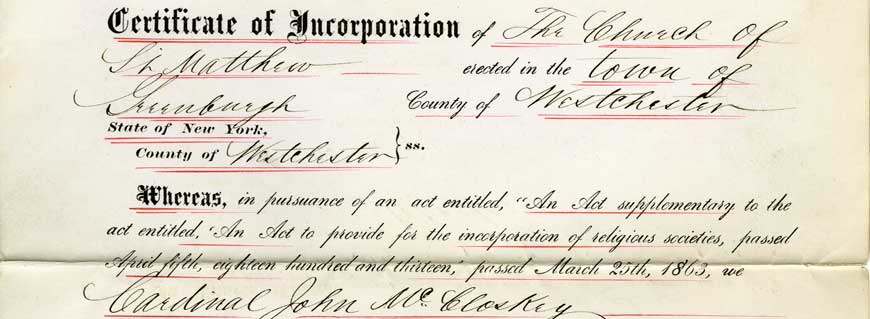 Certificate of Incorporation of The Church of
St. Matthew erected in the town of
Greenburgh County of Westchester
State of New York,
County of Westchester } ss.
Whereas, in pursuance of an act entitled, "An Act supplementary to the
act entitled, 'An Act to provide for the incorporation of religious societies, passed
April fifth, eighteen hundred and thirteen,' passed March 25th, 1863, we
Cardinal John Mc Closkey